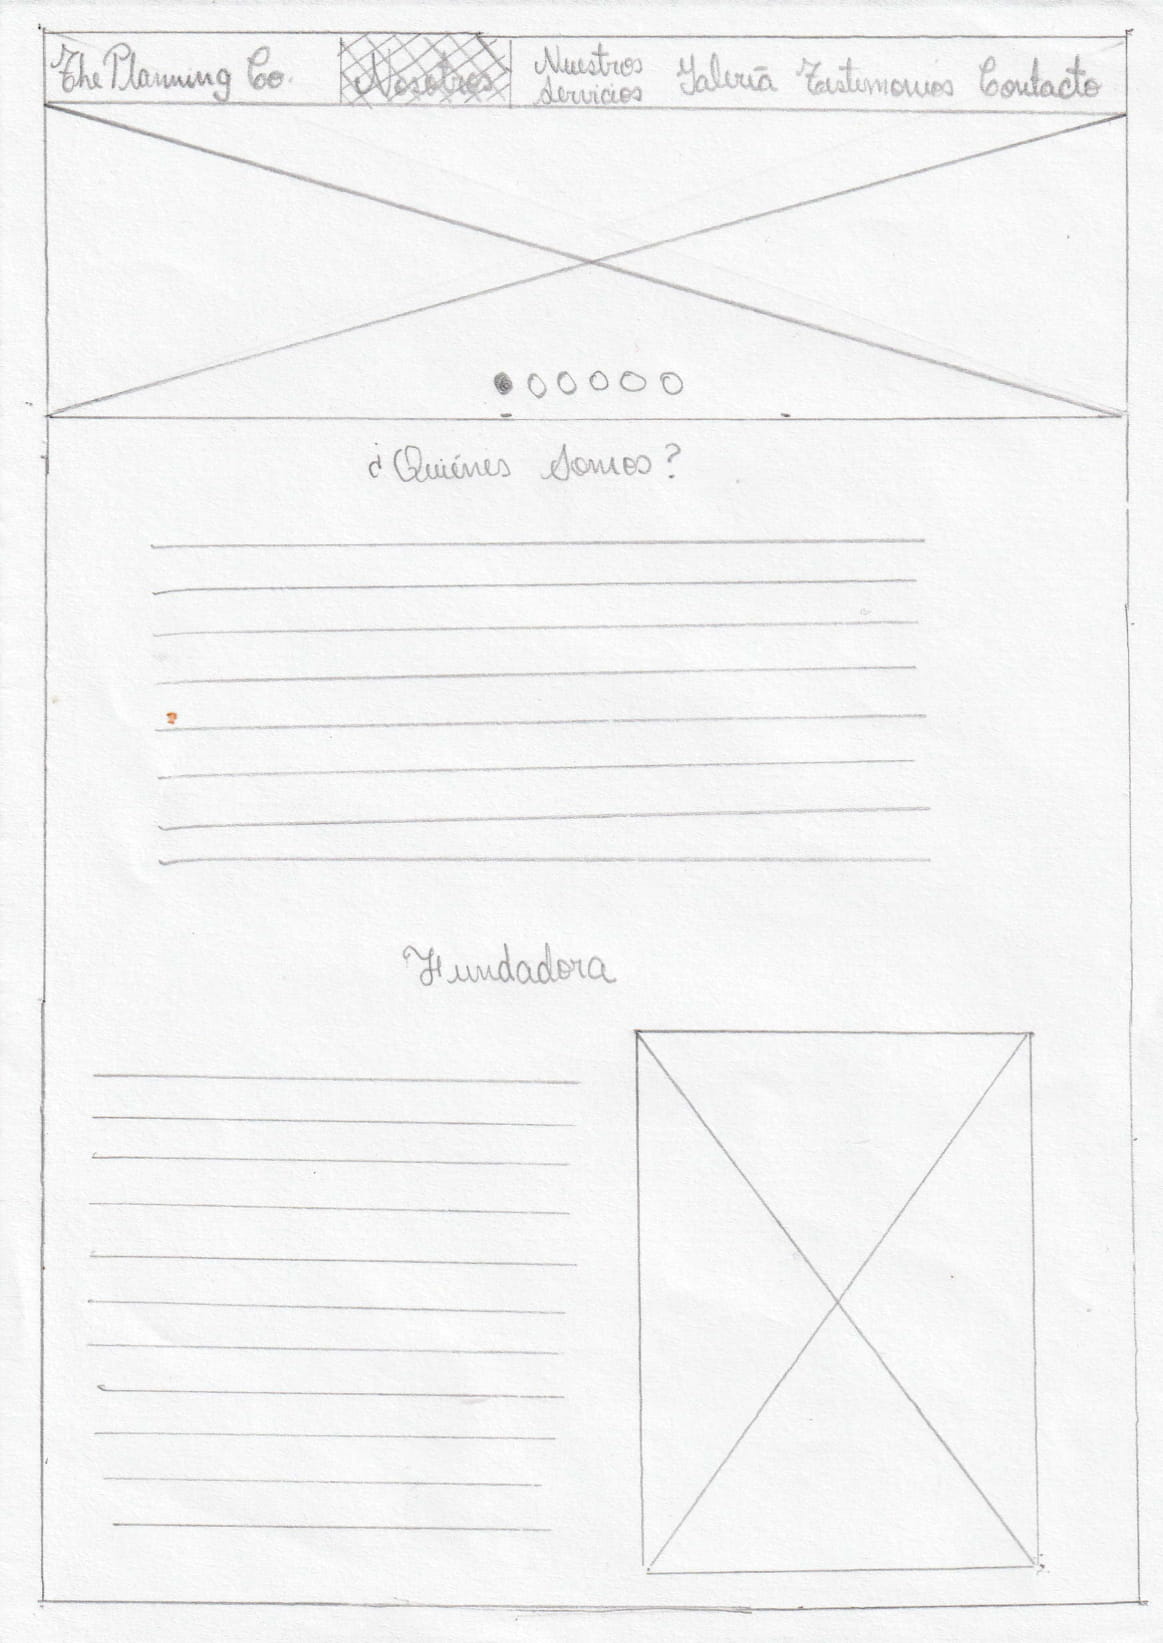 The Planning Co.
Nosotros
Nuestros
Servicios
Galería
Testimonios
Contacto
¿Quiénes Somos?
Fundadora